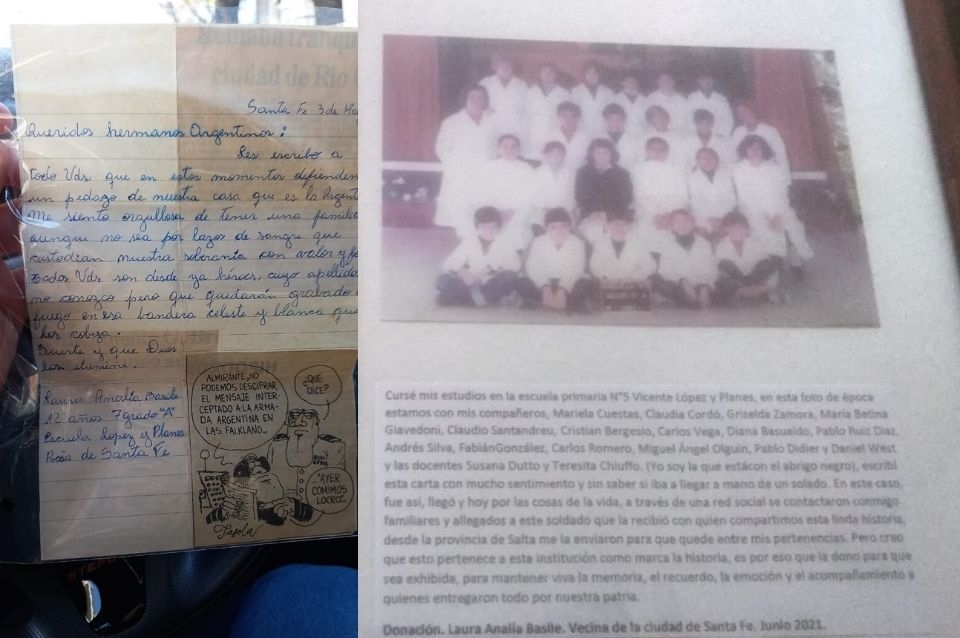 Santa Fe 3 de
Queridos hermanos Argentinos:
Les escribo a
todo Vds que en estos momentos defienden
un pedazo de nuestra casa que es la
Me siento orgullosa de tener una familia
aunque no sea por lazos de sangre que
custodian nuestra soberanía con valor y
todos Vds son desde ya héroes, cuyo apellidos
no conozco pero que quedarán grabado
fuego en esa bandera celeste y blanca que
los cobija.
Suerte y que Dios
los ilumine.
Laura Analía Basile
12 años 7 grado "A"
Escuela Lopez y Planes
Rosa de Santa Fe
ciudad de Río
ALMIRANTE, NO
PODEMOS DESCIFRAR
EL MENSAJE INTER-
CEPTADO A LA ARMA-
DA ARGENTINA EN
LAS FALKLAND..
¿QUE
DICE?
.."AYER
COMIMOS
LOCRO".
Cursé mis estudios en la escuela primaria N°5 Vicente López y Planes, en esta foto de época
estamos con mis compañeros, Mariela Cuestas, Claudia Cordó, Griselda Zamora, María Betina
Giavedoni, Claudio Santandreu, Cristian Bergesio, Carlos Vega, Diana Basualdo, Pablo Ruiz Diaz,
Andrés Silva, FabiánGonzález, Carlos Romero, Miguel Ángel Olguin, Pablo Didier y Daniel West
y las docentes Susana Dutto y Teresita Chiuffo. (Yo soy la que estácon el abrigo negro), escribí
esta carta con mucho sentimiento y sin saber si iba a llegar a mano de un solado. En este caso,
fue así, llegó y hoy por las cosas de la vida, a través de una red social se contactaron conmigo
familiares y allegados a este soldado que la recibió con quien compartimos esta linda historia,
desde la provincia de Salta me la enviaron para que quede entre mis pertenencias. Pero creo
que esto pertenece a esta institución como marca la historia, es por eso que la dono para que
sea exhibida, para mantener viva la memoria, el recuerdo, la emoción y el acompañamiento a
quienes entregaron todo por nuestra patria.
Donación. Laura Analía Basile. Vecina de la ciudad de Santa Fe. Junio 2021.